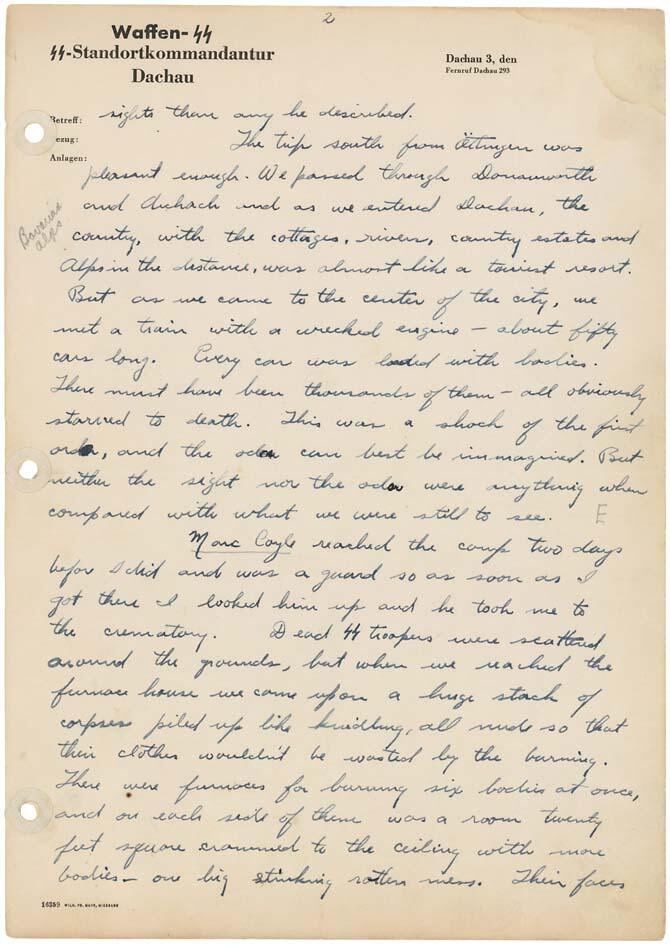 2
Waffen-SS
SS-Standortkommandantur
Dachau
Dachau 3, den
Fernruf Dachau 293
Betreff:
Bezug:
Anlagen:
sights than any he described.
The trip south from Öttingen was
pleasant enough. We passed through Donauworth
and Aichach and as we entered Dachau, the
country, with the cottages, rivers, country estates and
Alps in the distance, was almost like a tourist resort.
Bavarian
alps
But as we came to the center of the city, we
met a train with a wrecked engine – about fifty
cars long. Every car was loaded with bodies.
There must have been thousands of them – all obviously
starved to death. This was a shock of the first
order, and the odor can best be immagined. But
neither the sight nor the odor were anything when
compared with what we were still to see. E
Marc Coyle reached the camp two days
before I did and was a guard so as soon as I
got there I looked him up and he took me to
the crematory. Dead SS troopers were scattered
around the grounds, but when we reached the
furnace house we came upon a huge stack of
corpses piled up like kindling, all nude so that
their clothes wouldn't be wasted by the burning.
There were furnaces for burning six bodies at once,
and on each side of them was a room twenty
feet square crammed to the ceiling with more
bodies – one big stinking rotten mess. Their faces
16359 WILH. FR. MAYR, MIESBACH